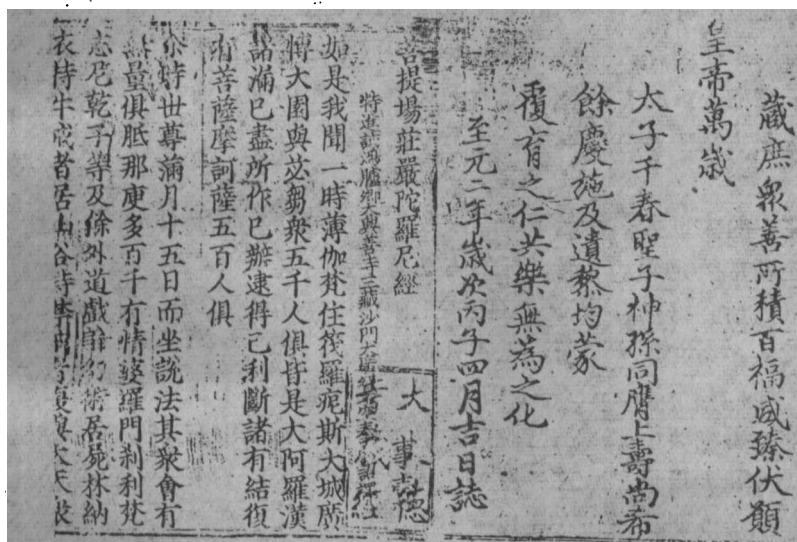 藏庶衆善所積百福咸臻伏願
皇帝萬歲
太子千春聖子神孫同膺上壽尚希
餘慶施及遺黎均蒙
覆育之仁共樂無為之化
至元二年歲次丙子四月吉日誌
菩提場莊嚴陀羅尼經
特進試鴻臚卿大興善寺三藏沙門大
如是我聞一時薄伽梵住筏羅痆斯大城廣
博大園與苾芻衆五千人俱皆是大阿羅漢
諸漏已盡所作已辦逮得己利斷諸有結復
有菩薩摩訶薩五百人俱
尒時世尊滿月十五日而坐說法其衆會有
無量俱胝那庾多百千有情婆羅門剎利梵
志尼乾子等及餘外道戲幻術居屍林納
衣持牛戒者居山谷